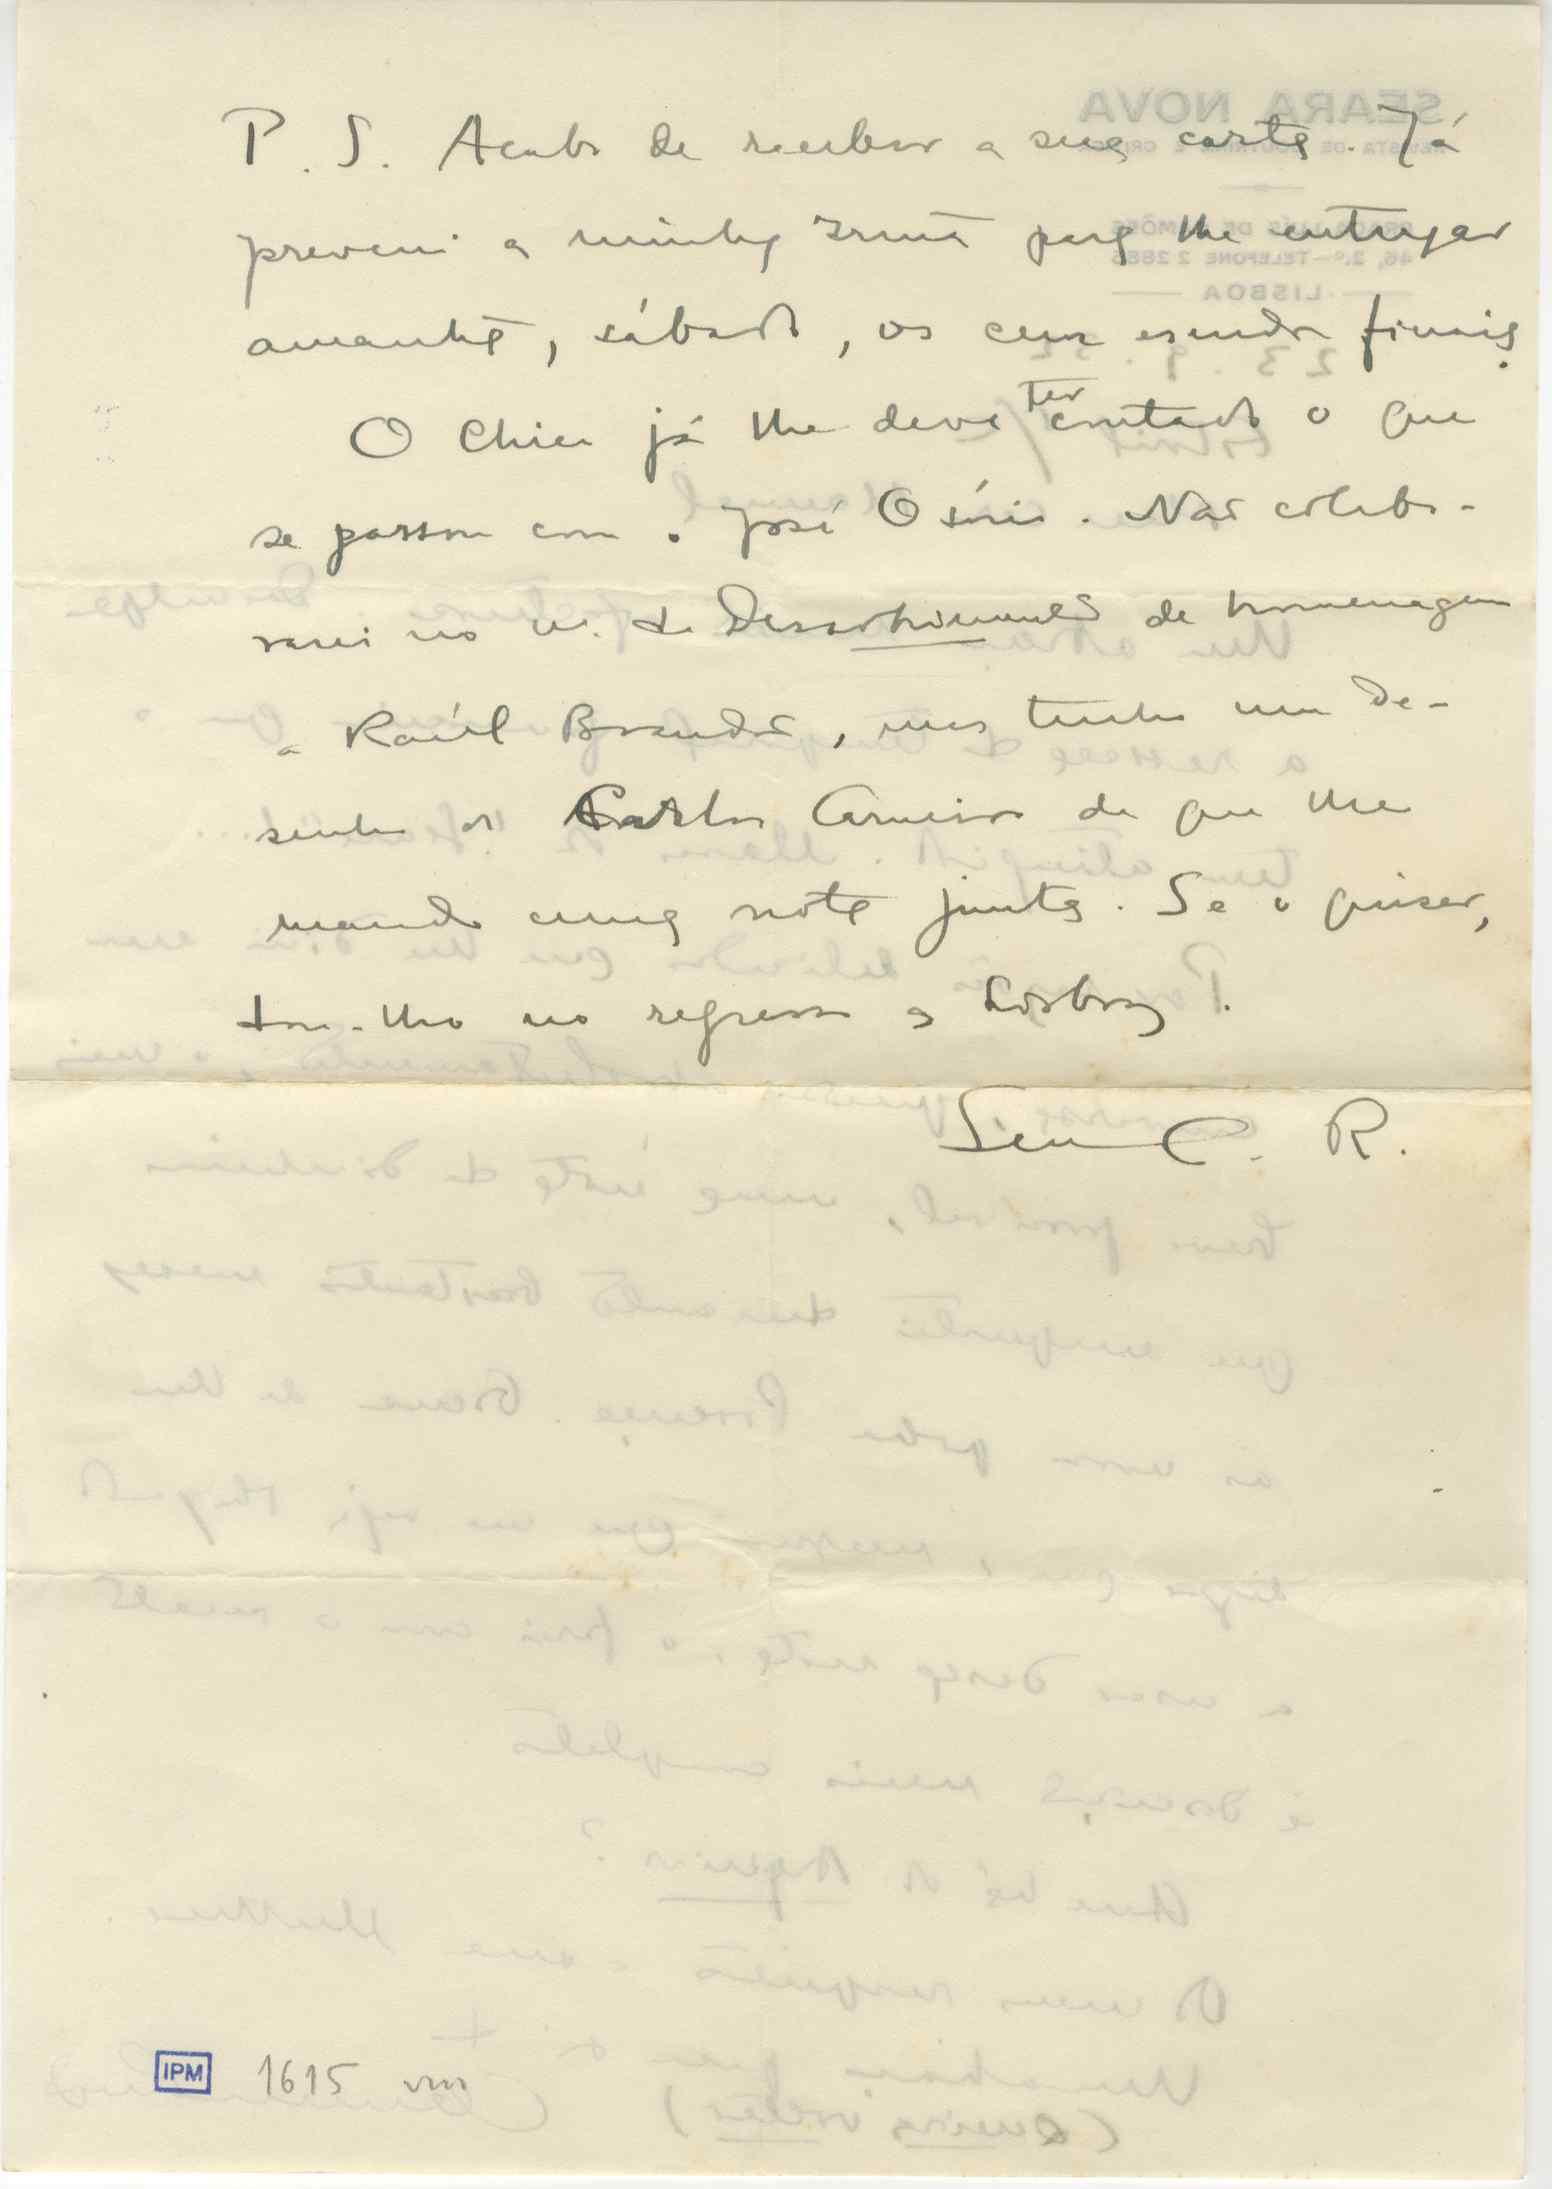 P. S. Acabo de receber a sua carta. Já
preveni a minha Irmã para lhe entregar
amanhã, sábado, os cem escudos finais.
O Chico já lhe deve ter contado o que
se passou com o José Osório. Não colabo-
rarei no n.º do Descobrimento de homenagem
a Raúl Brandão, mas tenho um de-
senho do Carlos Carneiro de que lhe
mando uma nota junta. Se o quiser,
dou-lho no regresso a Lisboa.
Seu C. R.
IPM 1615